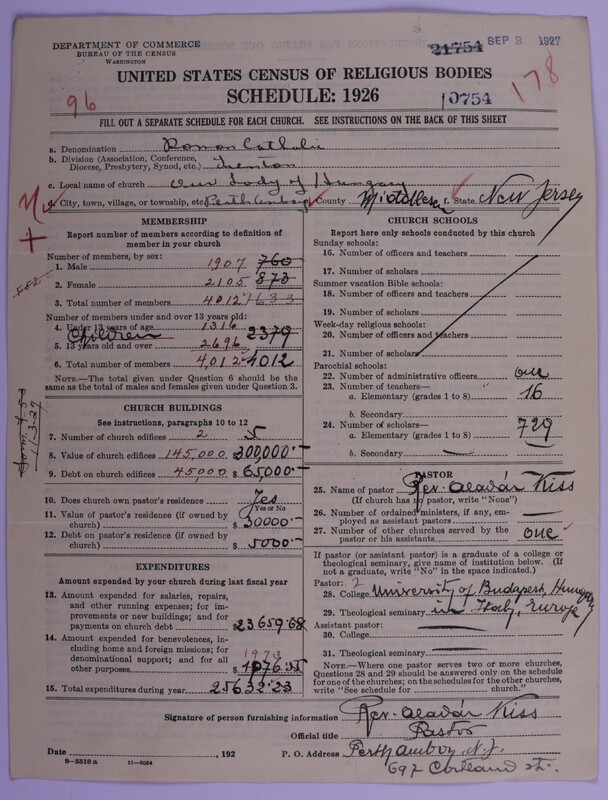 DEPARTMENT OF COMMERCE
BUREAU OF THE CENSUS
WASHINGTON
21754 SEP 3 1927
UNITED STATES CENSUS OF RELIGIOUS BODIES
SCHEDULE: 1926
96
10754
178
FILL OUT A SEPARATE SCHEDULE FOR EACH CHURCH. SEE INSTRUCTIONS ON THE BACK OF THIS SHEET
a. Denomination Roman Catholic
b. Division (Association, Conference, Diocese, Presbytery, Synod, etc.) Trenton
c. Local name of church Our Lady of Hungary
d. City, town, village, or township, etc. Perth Amboy County Middlesex f. State New Jersey
MEMBERSHIP
Report number of members according to definition of member in your church
Number of members, by sex:
1. Male 1907 760
2. Female 2105 873
3. Total number of members 4012 1633
Number of members under and over 13 years old:
4. Under 13 years of age 1316
Children 2379
5. 13 years old and over 2696
6. Total number of members 4012 4012
NOTE.—The total given under Question 6 should be the same as the total of males and females given under Question 3.
CHURCH BUILDINGS
See instructions, paragraphs 10 to 12
7. Number of church edifices 2 5
8. Value of church edifices 145,000 $ 300,000.—
9. Debt on church edifices 45000 $ 65,000.—
11-3-27
10. Does church own pastor's residence Yes
Yes or No
11. Value of pastor's residence (if owned by church) $ 30000.—
12. Debt on pastor's residence (if owned by church) $ 5000.—
EXPENDITURES
Amount expended by your church during last fiscal year
13. Amount expended for salaries, repairs, and other running expenses; for improvements or new buildings; and for payments on church debt $ 23659.68
14. Amount expended for benevolences, including home and foreign missions; for denominational support; and for all other purposes 1973 $
15. Total expenditures during year 25632.23
CHURCH SCHOOLS
Report here only schools conducted by this church
Sunday schools:
16. Number of officers and teachers
17. Number of scholars
Summer vacation Bible schools:
18. Number of officers and teachers
19. Number of scholars
Week-day religious schools:
20. Number of officers and teachers
21. Number of scholars
Parochial schools:
22. Number of administrative officers one
23. Number of teachers—
a. Elementary (grades 1 to 8) 16
b. Secondary
24. Number of scholars—
a. Elementary (grades 1 to 8) 729
b. Secondary
PASTOR
25. Name of pastor Rev. Aladár Kiss
(If church has no pastor, write "None")
26. Number of ordained ministers, if any, employed as assistant pastors
27. Number of other churches served by the pastor or his assistants one
If pastor (or assistant pastor) is a graduate of a college or theological seminary, give name of institution below. (If not a graduate, write "No" in the space indicated.)
Pastor: 2
28. College University of Budapest, Hungary
29. Theological seminary in Italy, Europe
Assistant pastor:
30. College
31. Theological seminary
NOTE.—Where one pastor serves two or more churches, Questions 28 and 29 should be answered only on the schedule for one of the churches; on the schedules for the other churches, write "See schedule for church."
Signature of person furnishing information Rev. Aladár Kiss
Official title Pastor
Date , 192 P. O. Address Perth Amboy N.J.
697 Cortland St.
8—5518 a 11—9054